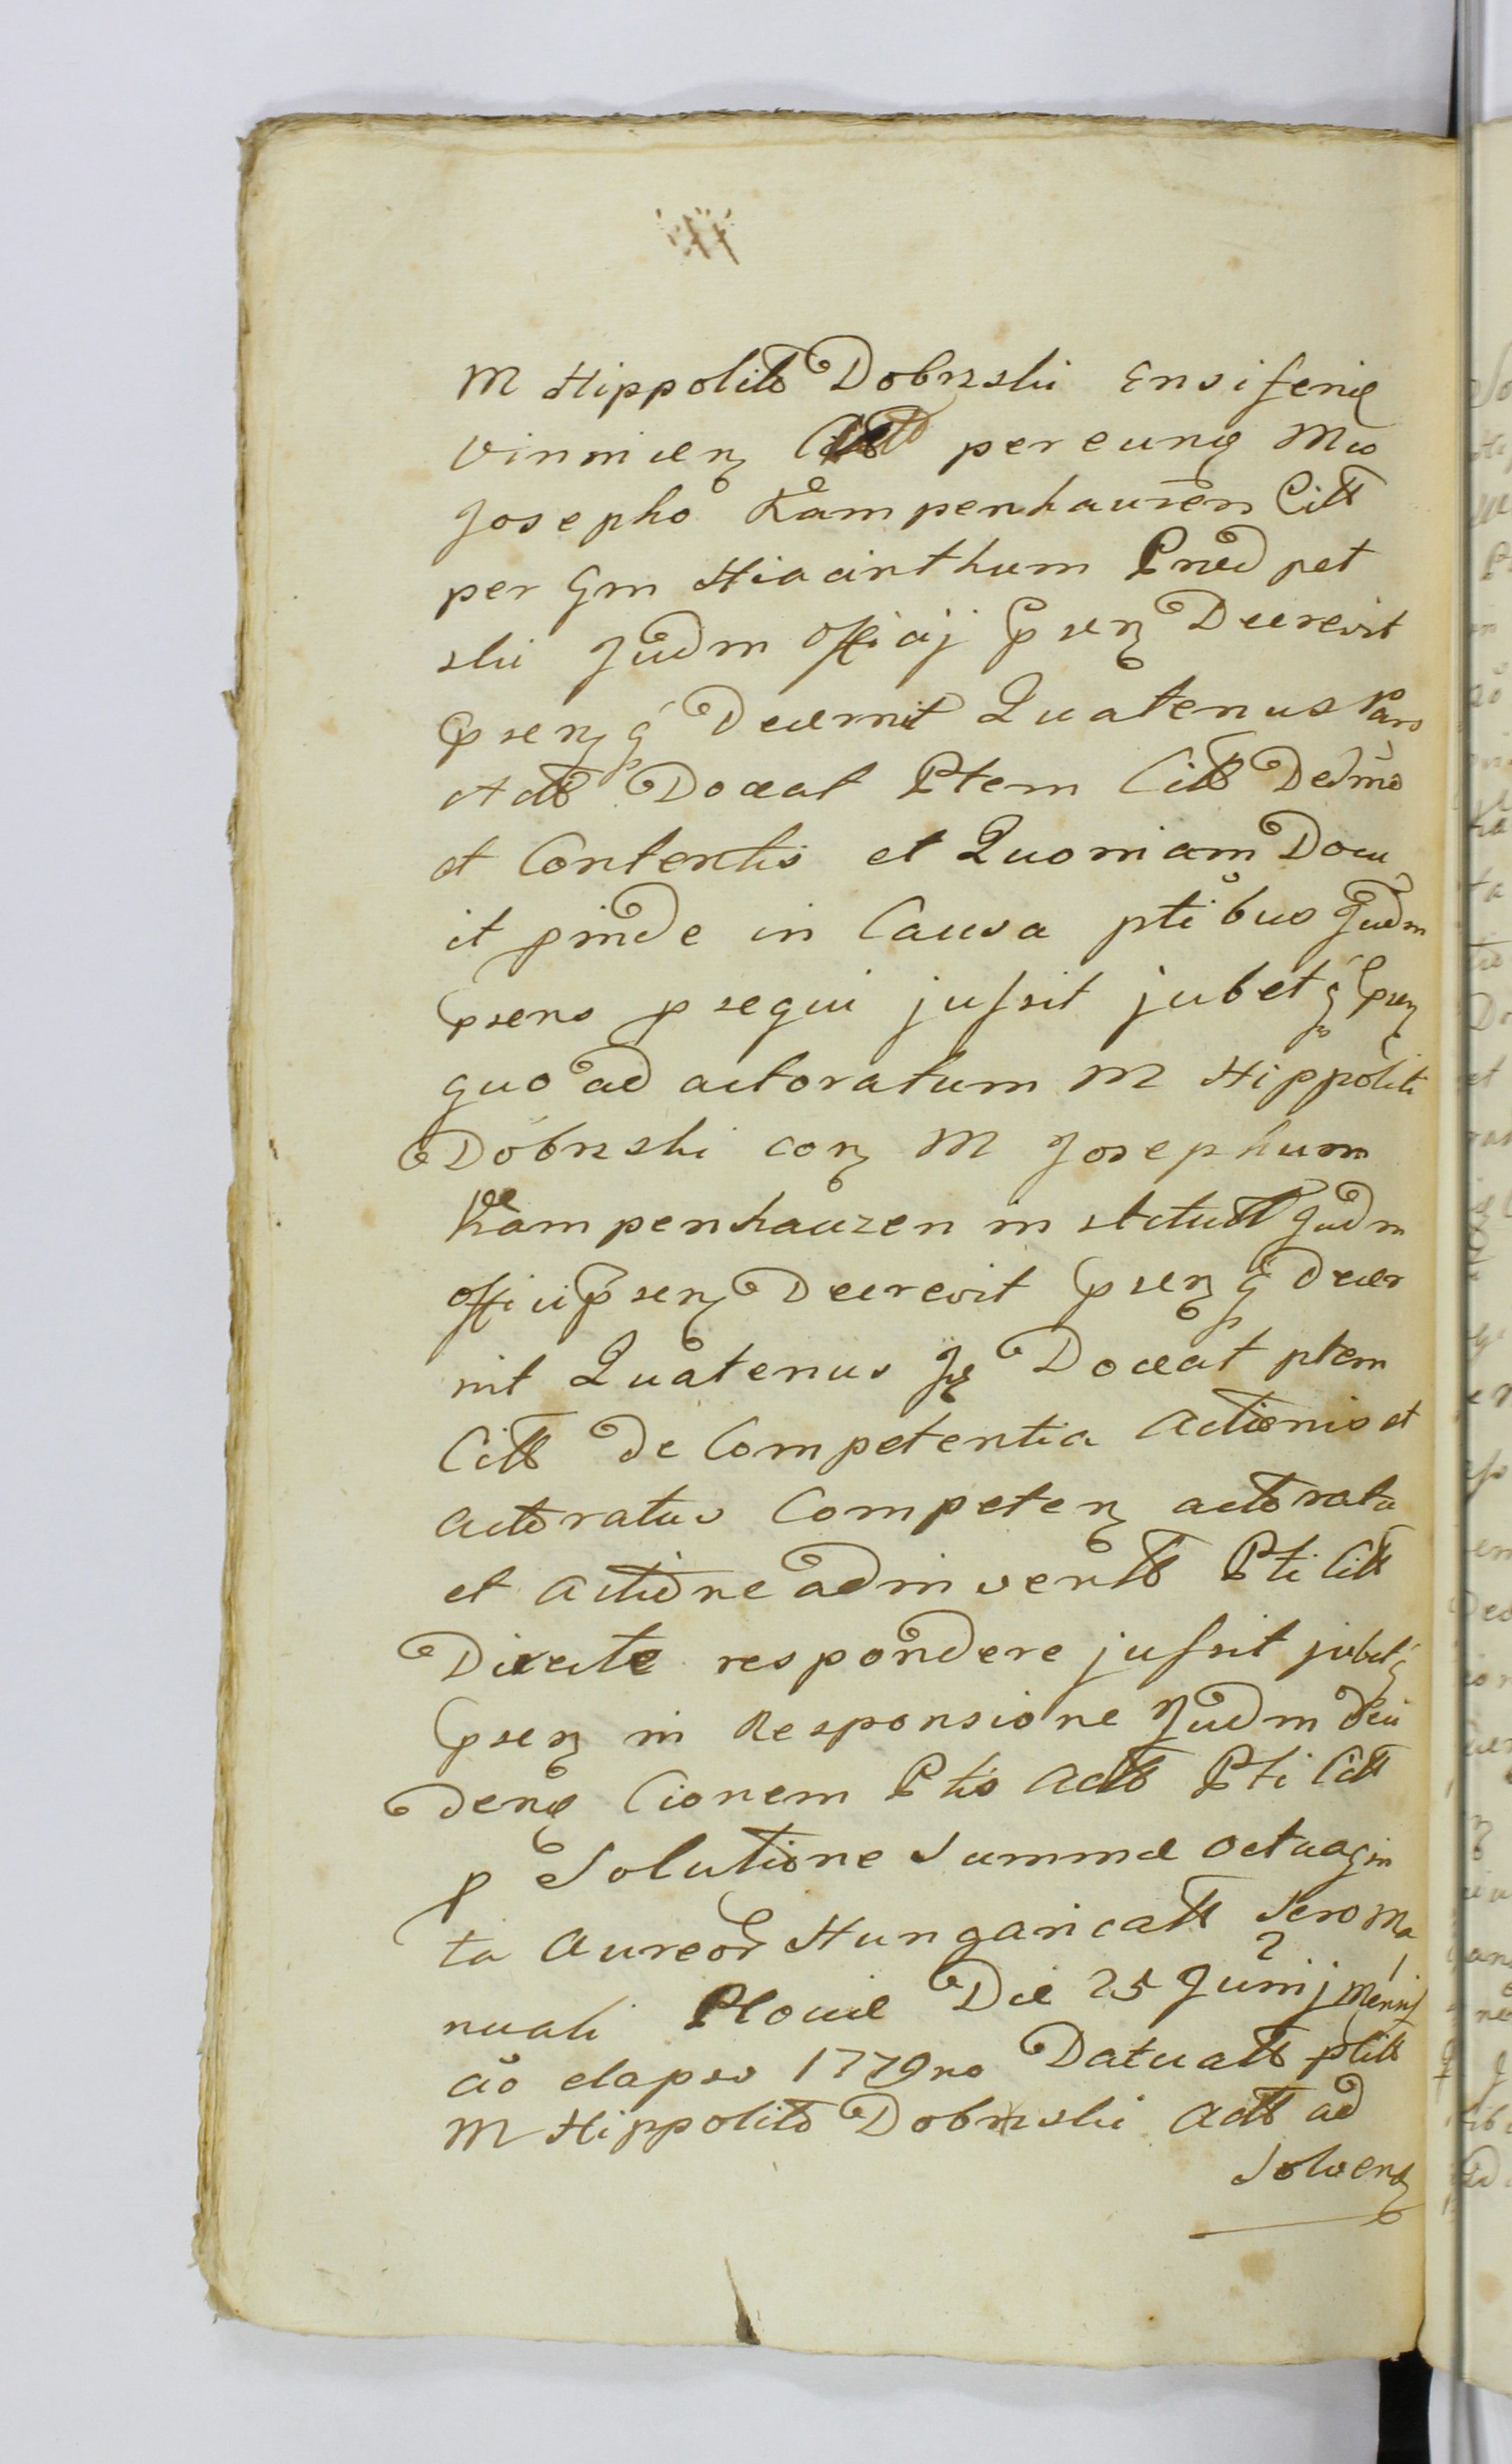 M Hippolito Dobrzski Ensiferię
Vinnicen Actt per eunq Mco
Josepho Kampenhauzen Citt
per Gm Hiacinthum Przed pet
ski Judm Officij psen Decrevit
psenq Decernit Quatenus Pars
Actt Doceat Ptem Citt De Im̃o
et Contentis et Quoniam Docu
it pinde in Causa ptibus Judm
psens p sequi jussit jubetq psen
quo ad actoratum M Hippoliti
Dobrzski con M Josephum
Kampenhauzen in stitutt Judm
Officii psen Decrevit psenq decer
nit Quatenus Ją Doceat ptem
Citt de Competentia actionis et
actoratus Competen actoratu
et actione adinventt Pti Citt
Directe respondere jussit jubetq
psen in Responsione Judm deci
denę Cionem Ptis actt Pti Citt
p Solutione Summæ octuagin
ta aureor Hungaricatt Scro Ma
nuali Plociæ Die 25 Junij
ão elapso 1779no Datuatt
M Hippolito Dobrzski actt ad
Solven